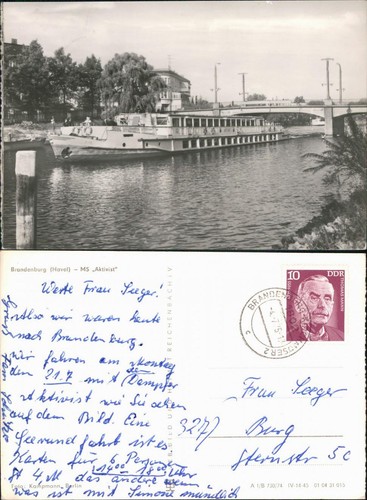 Brandenburg (Havel) — MS „Aktivist"
Werte Frau Seeger!
Also wir waren heute
nach Brandenburg.
Wir fahren am Montag
den 21.7 mit Dampfer
Aktivist wie Sie sehen
auf dem Bild. Eine
Seerundfahrt ist es
Karten für 6 Personen
a 4 M das andere wenn
was ist mit Simone mündlich
10 DDR
BRANDENBURG
Frau Seeger
3277 Burg
Sternstr 5c
Foto: Kampmann, Berlin
A 1/B 730/74 IV-14-45 01 04 01 015